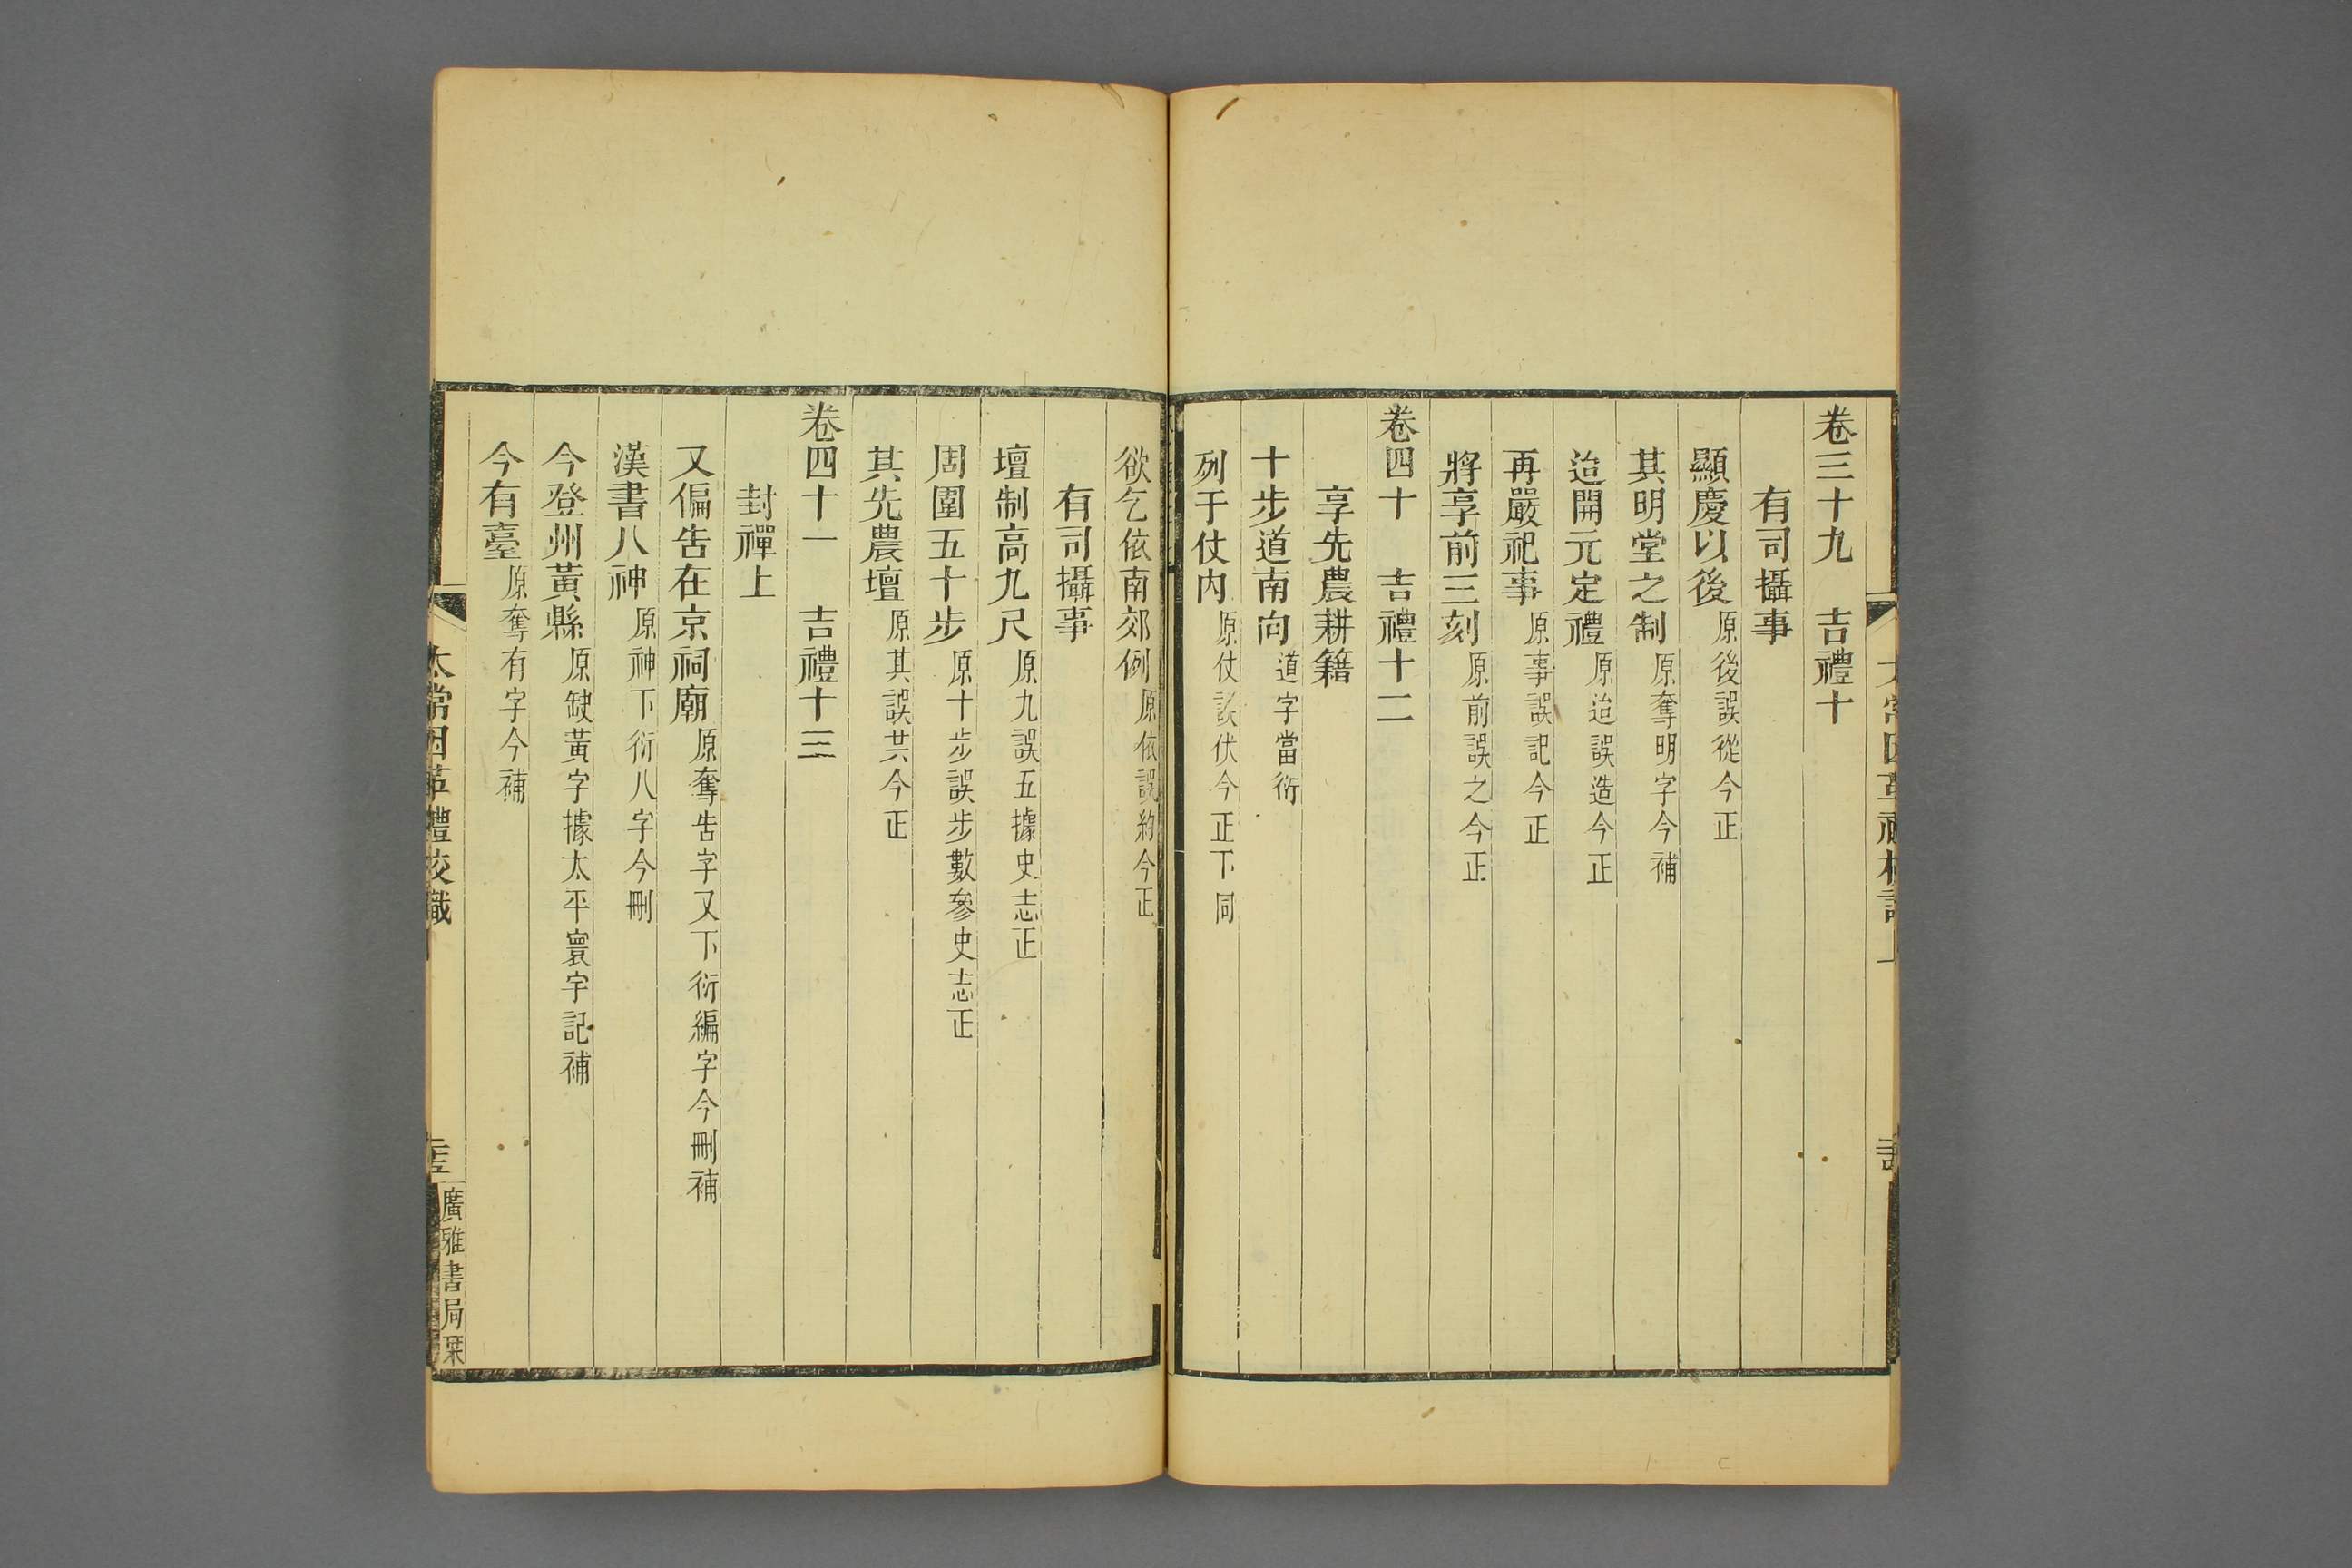 卷三十九　吉禮十
有司攝事
顯慶以後原後誤從今正
其明堂之制原奪明字今補
迨開元定禮原迨誤造今正
再嚴祀事原事誤記今正
將享前三刻原前誤之今正
卷四十　吉禮十二
享先農耕籍
十步道南向道字當衍
列于仗內原仗誤伏今正下同
欲乞依南郊例原依誤約今正
有司攝事
壇制高九尺原九誤五據史志正
周圍五十步原十步誤步數參史志正
其先農壇原其誤共今正
卷四十一　吉禮十三
封禪上
又徧告在京祠廟原奪告字又下衍編字今刪補
漢書八神原神下衍八字今刪
今登州黃縣原缺黃字據太平寰宇記補
今有臺原奪有字今補
太常因革禮校識
廣雅書局栞